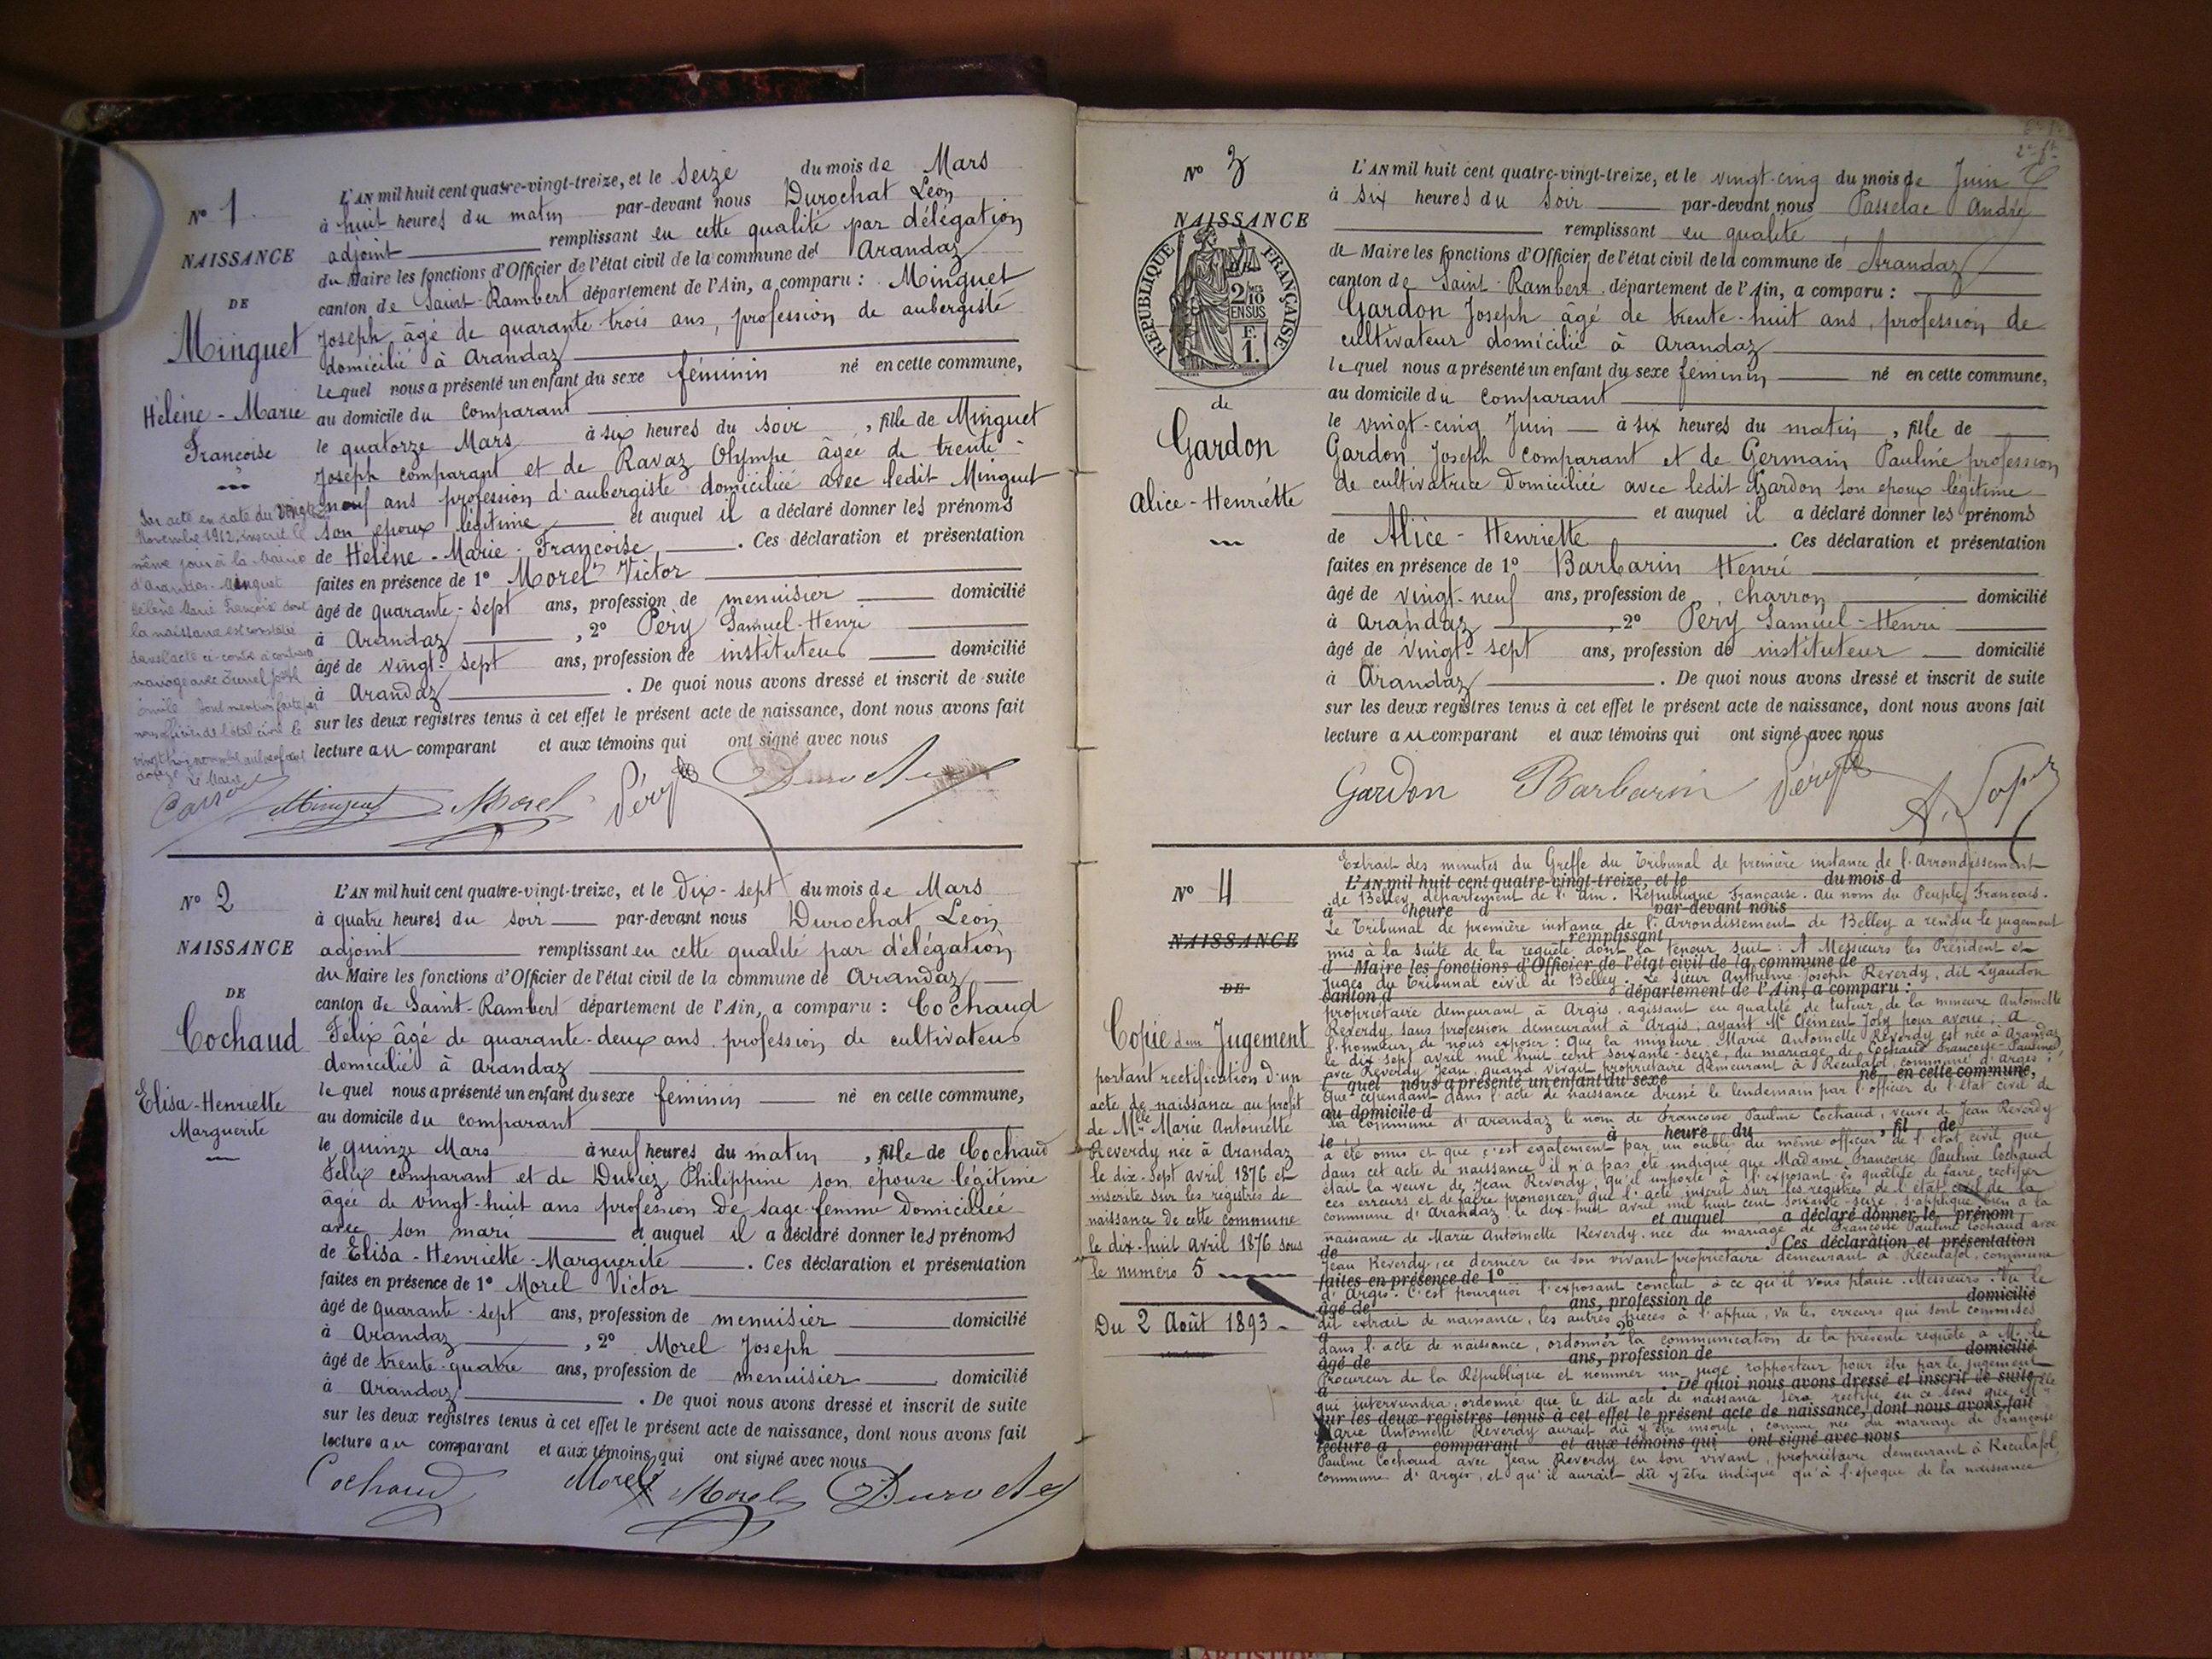 N° 1
NAISSANCE
DE
Minguet
Hélène - Marie
Françoise
L'AN mil huit cent quatre-vingt-treize, et le Seize du mois de Mars
à huit heures du matin par-devant nous Durochat Léon
adjoint remplissant en cette qualité par délégation
du Maire les fonctions d'Officier de l'état civil de la commune de Arandaz
canton de Saint-Rambert département de l'Ain, a comparu : Minguet
Joseph, âgé de quarante-trois ans, profession de aubergiste
domicilié à Arandaz
lequel nous a présenté un enfant du sexe féminin né en cette commune,
au domicile du comparant
le quatorze Mars à six heures du soir, fille de Minguet
Joseph comparant et de Ravaz Olympe âgée de trente-
neuf ans profession d'aubergiste domiciliée avec ledit Minguet
son époux légitime et auquel il a déclaré donner les prénoms
de Hélène-Marie-Françoise. Ces déclaration et présentation
faites en présence de 1° Morel Victor
âgé de quarante-sept ans, profession de menuisier domicilié
à Arandaz, 2° Pery Samuel-Henri
âgé de vingt-sept ans, profession de instituteur domicilié
à Arandaz. De quoi nous avons dressé et inscrit de suite
sur les deux registres tenus à cet effet le présent acte de naissance, dont nous avons fait
lecture au comparant et aux témoins qui ont signé avec nous
Par acte en date du vingt
Novembre 1912, inscrit le
même jour à la Mairie
d'Arandas - Minguet
Hélène Marie Françoise dont
la naissance est constatée
dans l'acte ci-contre a contracté
mariage avec
vingt trois novembre mil neuf cent
douze Le Maire
Minguet Morel Péry Durochat
N° 2
NAISSANCE
DE
Cochaud
Elisa-Henriette
Marguerite
L'AN mil huit cent quatre-vingt-treize, et le dix-sept du mois de Mars
à quatre heures du soir par-devant nous Durochat Léon
adjoint remplissant en cette qualité par délégation
du Maire les fonctions d'Officier de l'état civil de la commune de Arandaz
canton de Saint-Rambert département de l'Ain, a comparu : Cochaud
Félix âgé de quarante-deux ans profession de cultivateur
domicilié à Arandaz
lequel nous a présenté un enfant du sexe féminin né en cette commune,
au domicile du comparant
le quinze Mars à neuf heures du matin, fille de Cochaud
Félix comparant et de Dubiez Philippine son épouse légitime
âgée de vingt-huit ans profession de sage-femme domiciliée
avec son mari et auquel il a déclaré donner les prénoms
de Elisa-Henriette-Marguerite. Ces déclaration et présentation
faites en présence de 1° Morel Victor
âgé de quarante-sept ans, profession de menuisier domicilié
à Arandaz, 2° Morel Joseph
âgé de trente-quatre ans, profession de menuisier domicilié
à Arandaz. De quoi nous avons dressé et inscrit de suite
sur les deux registres tenus à cet effet le présent acte de naissance, dont nous avons fait
lecture au comparant et aux témoins qui ont signé avec nous
Cochaud Morel Morel Durochat
N° 3
NAISSANCE
RÉPUBLIQUE FRANÇAISE
2/10 EN SUS
F. 1.
de
Gardon
Alice-Henriette
L'AN mil huit cent quatre-vingt-treize, et le vingt-cinq du mois de Juin
à six heures du soir par-devant nous Passelac André
remplissant en qualité
de Maire les fonctions d'Officier de l'état civil de la commune de Arandaz
canton de Saint-Rambert département de l'Ain, a comparu :
Gardon Joseph âgé de trente-huit ans, profession de
cultivateur domicilié à Arandaz
lequel nous a présenté un enfant du sexe féminin né en cette commune,
au domicile du comparant
le vingt-cinq Juin à six heures du matin, fille de
Gardon Joseph comparant et de Germain Pauline profession
de cultivatrice domiciliée avec ledit Gardon son époux légitime
et auquel il a déclaré donner les prénoms
de Alice-Henriette. Ces déclaration et présentation
faites en présence de 1° Barbarin Henri
âgé de vingt-neuf ans, profession de charron domicilié
à Arandaz, 2° Péry Samuel-Henri
âgé de vingt-sept ans, profession de instituteur domicilié
à Arandaz. De quoi nous avons dressé et inscrit de suite
sur les deux registres tenus à cet effet le présent acte de naissance, dont nous avons fait
lecture au comparant et aux témoins qui ont signé avec nous
Gardon Barbarin Péry
N° 4
NAISSANCE
DE
Copie d'un Jugement
portant rectification d'un
acte de naissance au profit
de Mlle Marie Antoinette
Reverdy née à Arandaz
le dix-sept avril 1876 et
inscrite sur les registres de
naissance de cette commune
le dix-huit avril 1876 sous
le numéro 5
Du 2 Août 1893
Extrait des minutes du Greffe du Tribunal de première instance de l'Arrondissement
L'AN mil huit cent quatre-vingt-treize, et le du mois d
de Belley, département de l'Ain. République Française. Au nom du Peuple Français.
à heure d par-devant nous
Le Tribunal de première instance de l'Arrondissement de Belley a rendu le jugement
remplissant
mis à la suite de la requête dont la teneur suit : A Messieurs les Président et
d Maire les fonctions d'Officier de l'état civil de la commune de
Juges du Tribunal civil de Belley. Le sieur Anthelme Joseph Reverdy, dit Lyaudon
canton d département de l'Ain, a comparu :
propriétaire demeurant à Argis, agissant en qualité de tuteur de la mineure Antoinette
Reverdy sans profession demeurant à Argis, ayant Me Clément Joly pour avoué, a
l'honneur de nous exposer : Que la mineure Marie Antoinette Reverdy est née à Arandaz
le dix sept avril mil huit cent soixante-seize, du mariage de Cochaud Françoise-Pauline
avec Reverdy Jean, quand vivait propriétaire demeurant à Reculafol, commune d'Argis ;
l quel nous a présenté un enfant du sexe né en cette commune,
Que cependant dans l'acte de naissance dressé le lendemain par l'officier de l'état civil de
au domicile d
la commune d'Arandaz le nom de Françoise Pauline Cochaud, veuve de Jean Reverdy
le à heure du, fil de
a été omis et que c'est également par un oubli du même officier de l'état civil que
dans cet acte de naissance il n'a pas été indiqué que Madame Françoise Pauline Cochaud
était la veuve de Jean Reverdy, qu'il importe à l'exposant ès qualité de faire rectifier
ces erreurs et de faire prononcer que l'acte inscrit sur les registres de l'état civil de la
commune d'Arandaz le dix-huit avril mil huit cent soixante-seize s'applique bien à la
et auquel a déclaré donner le prénom
naissance de Marie Antoinette Reverdy née du mariage de Françoise Pauline Cochaud avec
de . Ces déclaration et présentation
Jean Reverdy, ce dernier en son vivant propriétaire demeurant à Reculafol, commune
faites en présence de 1°
d'Argis. C'est pourquoi l'exposant conclut à ce qu'il vous plaise. Messieurs. Vu le
âgé de ans, profession de domicilié
dit extrait de naissance, les autres pièces à l'appui, vu les erreurs qui sont commises
à 2°
dans l'acte de naissance, ordonner la communication de la présente requête à M. le
âgé de ans, profession de domicilié
Procureur de la République et nommer un juge rapporteur pour être par le jugement
à . De quoi nous avons dressé et inscrit de suite
qui interviendra, ordonné que le dit acte de naissance sera rectifié en ce sens que Mlle
sur les deux registres tenus à cet effet le présent acte de naissance, dont nous avons fait
Marie Antoinette Reverdy aurait dû y être inscrite comme née du mariage de Françoise
lecture a comparant et aux témoins qui ont signé avec nous
Pauline Cochaud avec Jean Reverdy en son vivant, propriétaire demeurant à Reculafol,
commune d'Argis, et qu'il aurait dû y être indiqué qu'à l'époque de la naissance